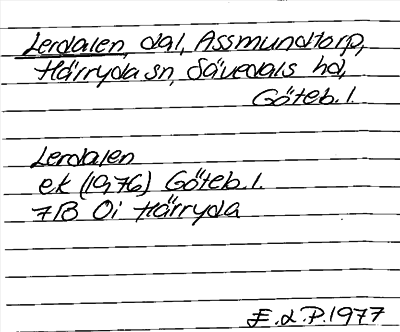 Lerdalen, dal, Assmundtorp,
Härryda sn, Sävedals hd,
Göteb. l.
Lerdalen
ek (1976) Göteb. l.
7B 0i Härryda
E. d. P. 1977